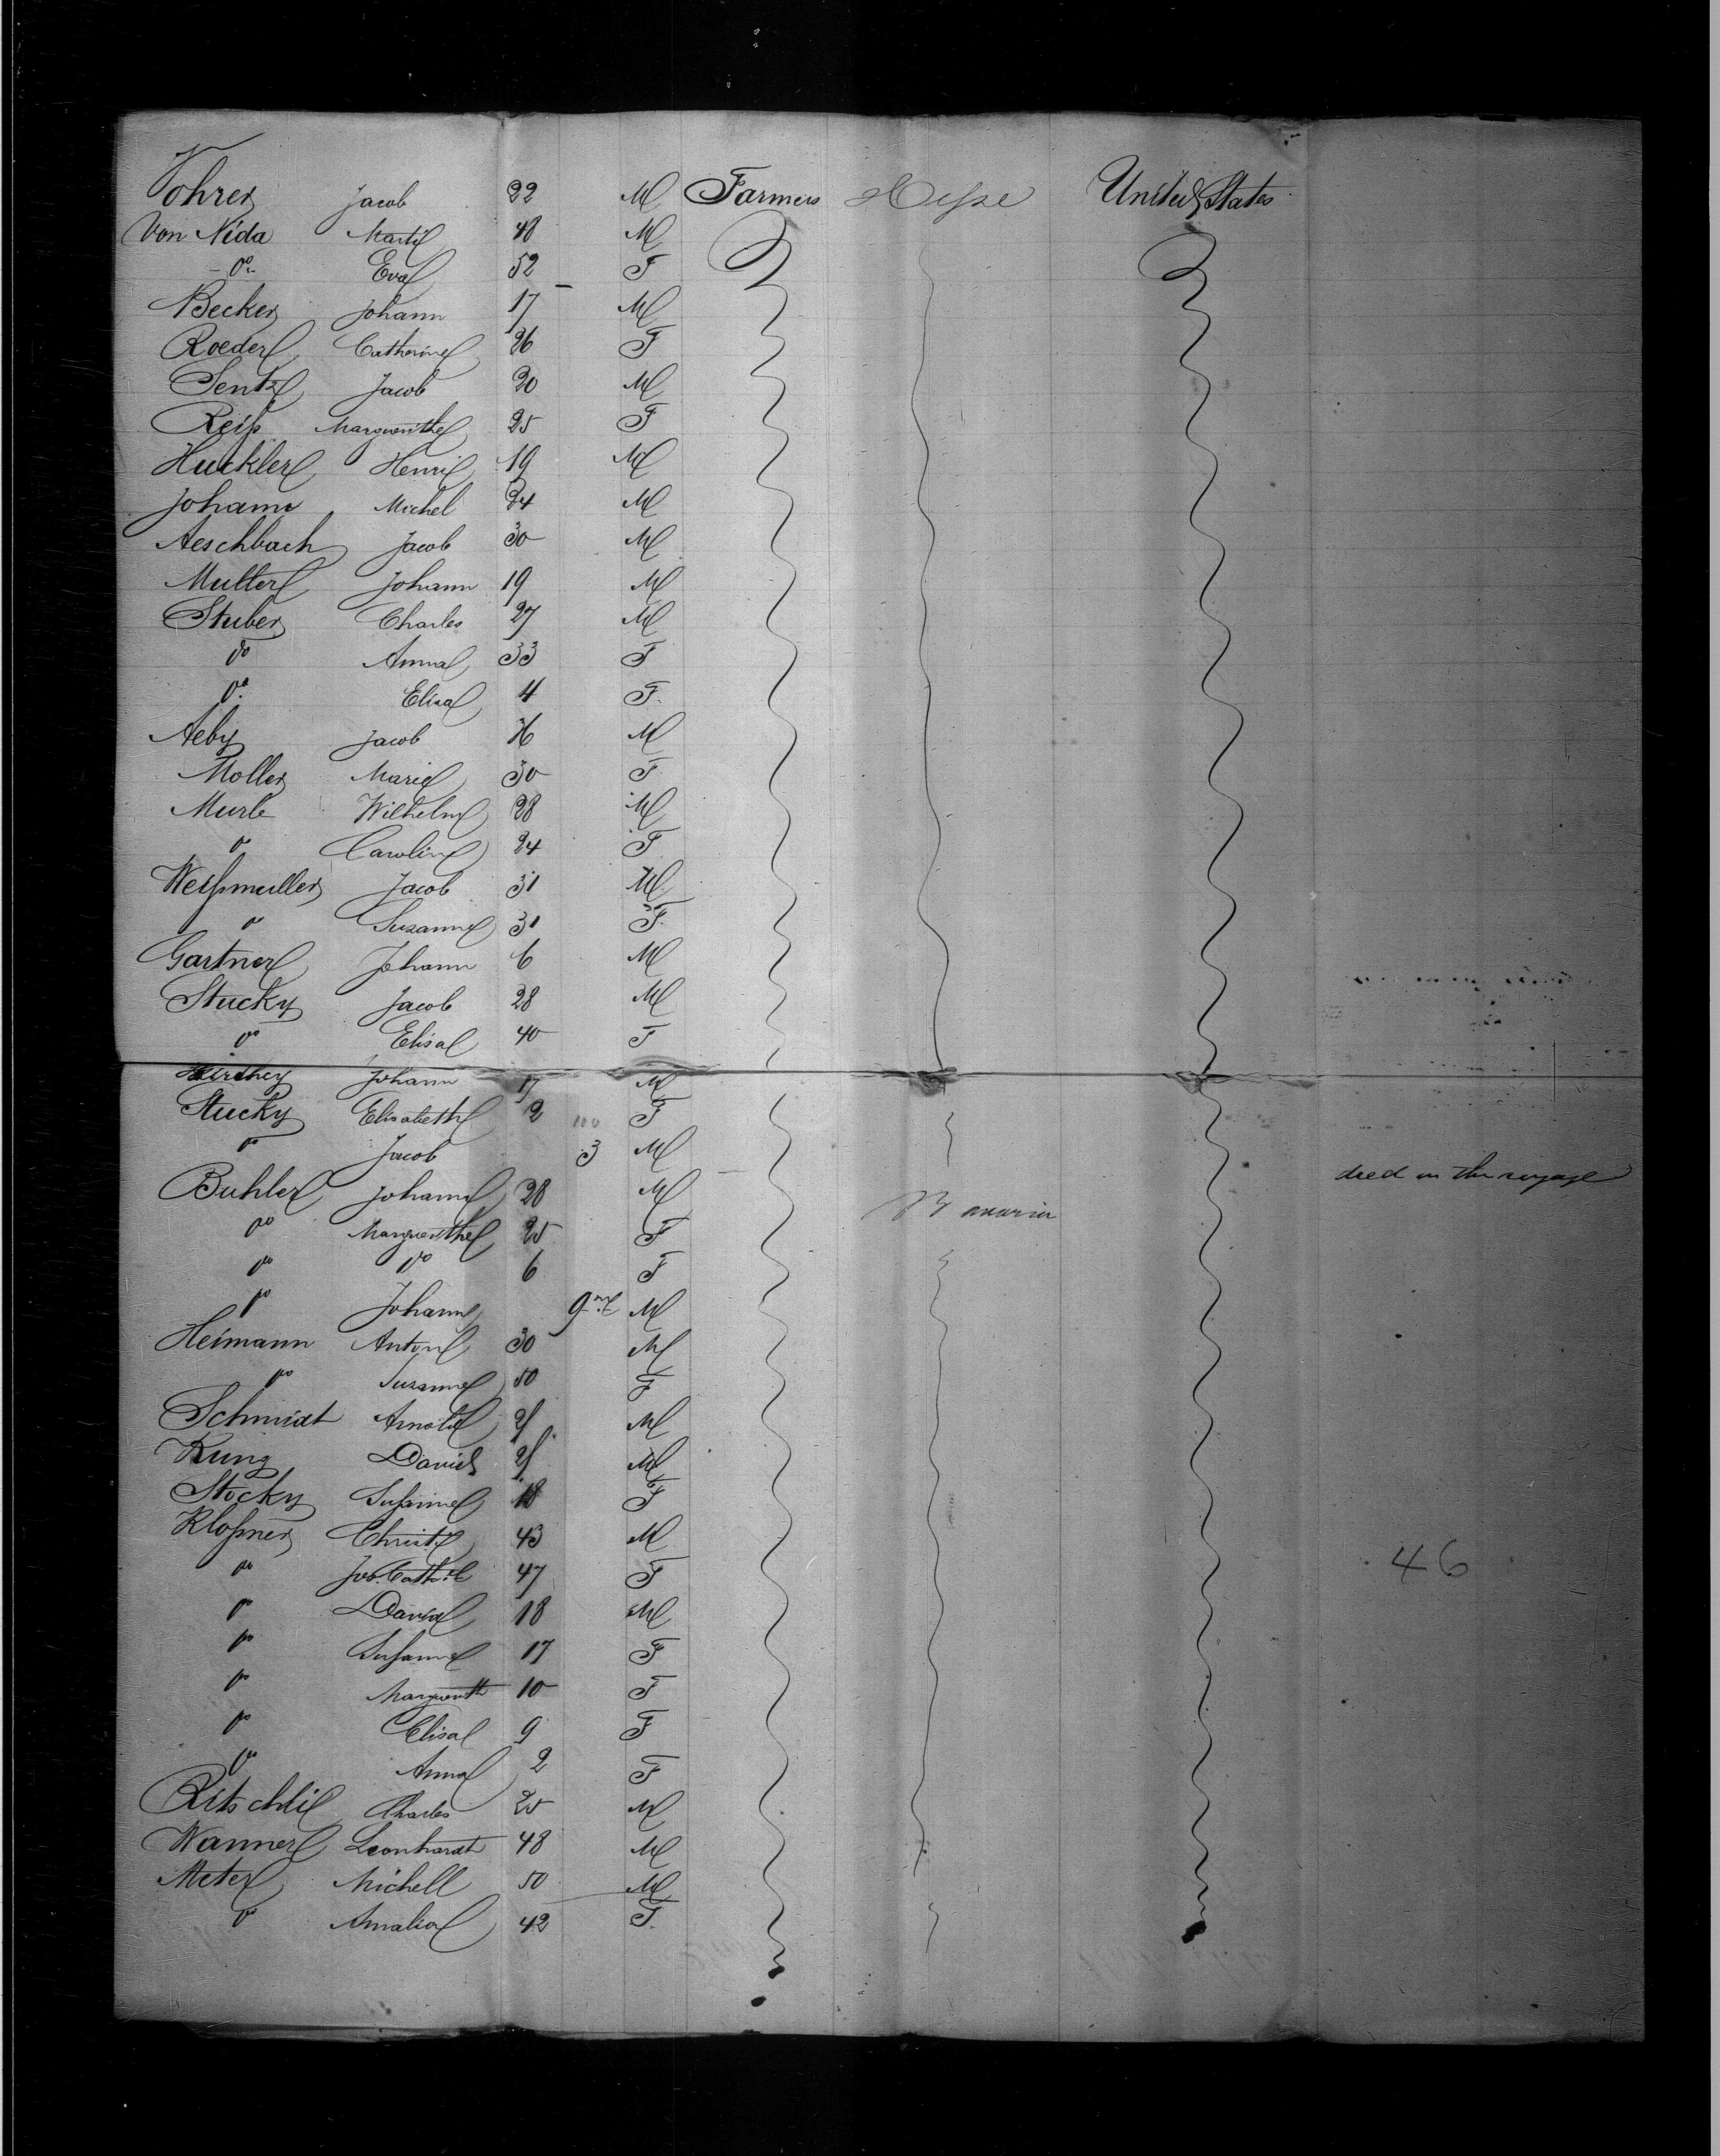 Vohrer Jacob 22 M Farmers Hesse United States
Von Nida Marti 48 M
do Eva 52 F
Becker Johann 17 M
Roeder Catherine 26 F
Sentz Jacob 20 M
Reiß Marguerithe 25 F
Huckler Henri 19 M
Johann Michel 24 M
Aeschbach Jacob 30 M
Muller Johann 19 M
Stuber Charles 27 M
do Anna 33 F
do Elisa 4 F
Aeby Jacob M
Moller Marie 30 F
Murle Wilhelm 28 M
do Caroline 24 F
Weißmuller Jacob 31 M
do Suzanne 31 F
Gartner Johann 6 M
Stucky Jacob 28 M
do Elisa 40 F
Johann 17 M
Stucky Elisabeth 2 F
do Jacob 3 M died on the voyage
Buhler Johann 28 M Bavaria
do Marguerithe 25 F
do do 6 F
do Johann 9 mt M
Heimann Anton 30 M
do Suzanne 50 F
Schmidt Arnold M
Kung Daniel M
Stocky Sußanne 18 F
Kloßner Christ 43 M
do 47 F 46
do David 18 M
do Sußanne 17 F
do Marguerith 10 F
do Elisa 9 F
do Anna 2 F
Ritschli Charles 25 M
Wanner Leonhardt 48 M
Meter Michell 50 M
do Amalia 42 F